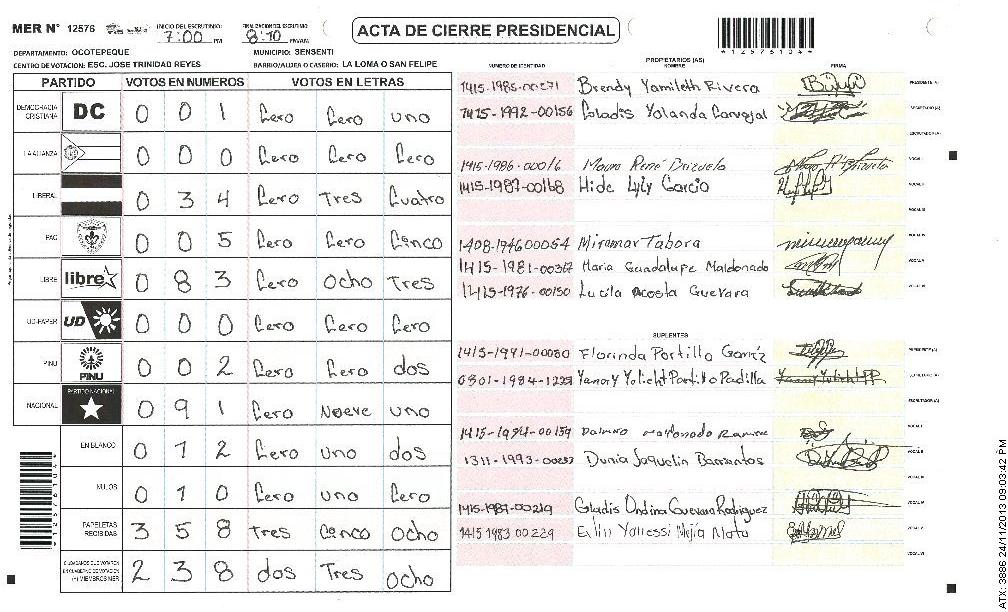 MER N° 12576 INICIO DEL ESCRUTINIO: 7:00 PM FINALIZACION DEL ESCRUTINIO: 8:10 PM/AM. ACTA DE CIERRE PRESIDENCIAL
DEPARTAMENTO: OCOTEPEQUE MUNICIPIO: SENSENTI
CENTRO DE VOTACION: ESC. JOSE TRINIDAD REYES BARRIO/ALDEA O CASERIO: LA LOMA O SAN FELIPE
PARTIDO VOTOS EN NUMEROS VOTOS EN LETRAS
DEMOCRACIA CRISTIANA DC 0 0 1 Cero Cero uno
LA ALIANZA 0 0 0 Cero Cero Cero
LIBERAL 0 3 4 Cero Tres Cuatro
PAC 0 0 5 Cero Cero Cinco
LIBRE libre 0 8 3 Cero Ocho Tres
UD-FAPER UD 0 0 0 Cero Cero Cero
PINU PINU 0 0 2 Cero Cero dos
NACIONAL PARTIDO NACIONAL 0 9 1 Cero Nueve uno
EN BLANCO 0 1 2 Cero uno dos
NULOS 0 1 0 Cero uno Cero
PAPELETAS RECIBIDAS 3 5 8 Tres Cinco Ocho
CIUDADANOS QUE VOTARON EN CUADERNO DE VOTACION (+) MIEMBROS MER 2 3 8 dos Tres Ocho
PROPIETARIOS (AS)
NUMERO DE IDENTIDAD NOMBRE FIRMA
1415-1985-00271 Brendy Yamileth Rivera PRESIDENTE (A)
1415-1992-00156 Gladis Yolanda Carvajal SECRETARIO (A)
ESCRUTADOR (A)
1415-1986-00016 René VOCAL I
1415-1987-00168 Hide Lyly Garcia VOCAL II
VOCAL III
1408-1946 00054 Miramar Tabora VOCAL IV
1415-1981-00367 Maria Guadalupe Maldonado VOCAL V
1415-1976-00150 Lucila Acosta Guevara VOCAL VI
SUPLENTES
1415-1991-00080 Florinda Portillo PRESIDENTE (A)
0801-1984- Portillo Padilla SECRETARIO (A)
ESCRUTADOR (A)
1415-1984-00159 Maldonado VOCAL I
1311-1993- Dunia Jaquelin Barrientos VOCAL II
VOCAL III
1415-1987-00219 Gladis Ondina Guevara Rodriguez VOCAL IV
1415 1983 00229 Mejia VOCAL V
VOCAL VI
ATX: 3886 24/11/2013 09:03:42 PM